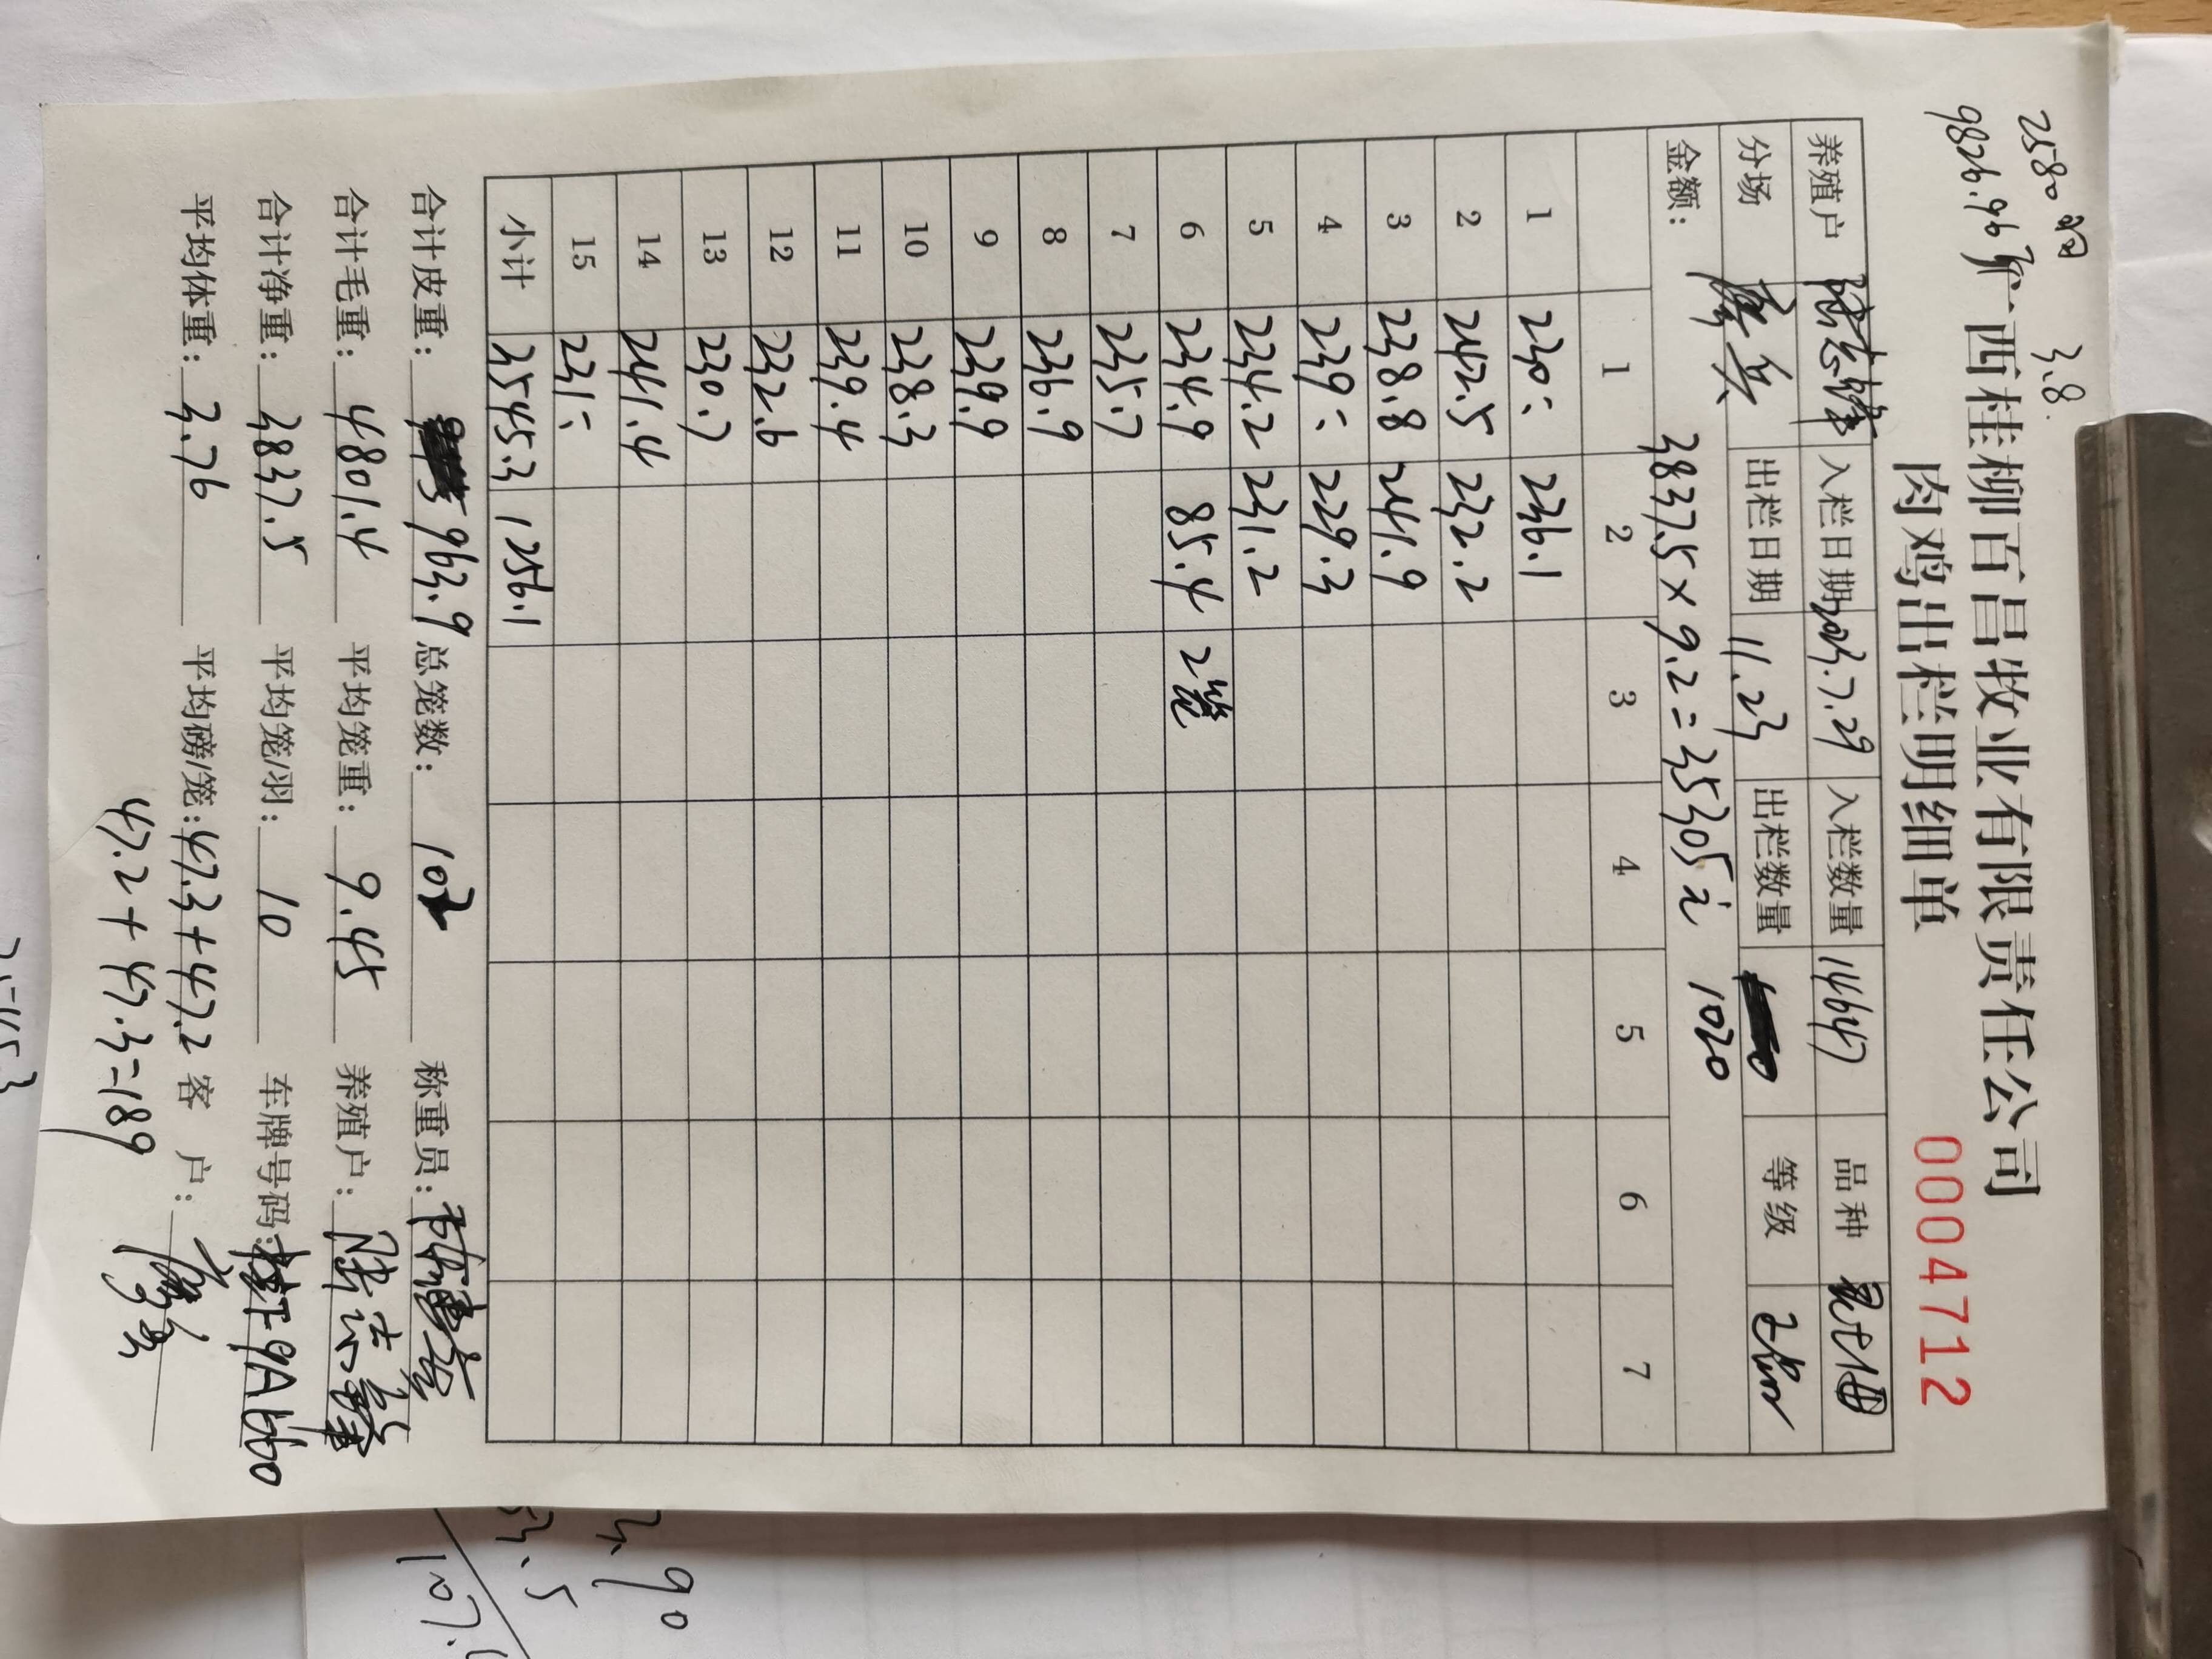 2580羽 3.8
9826.96斤
广西桂柳百昌牧业有限责任公司
肉鸡出栏明细单 0004712
养殖户 入栏日期 2023.7.29 入栏数量 14647 品种
分场 出栏日期 11.23 出栏数量 等级
金额： 3837.5×9.2=35305元 1020
1 2 3 4 5 6 7
1 230: 236.1
2 242.5 232.2
3 238.8 241.9
4 239: 229.3
5 234.2 231.2
6 234.9 85.4 2笼
7 235.7
8 236.9
9 239.9
10 238.3
11 239.4
12 232.6
13 230.7
14 241.4
15 231:
小计 3545.3 1256.1
合计皮重： 963.9 总笼数： 102 称重员：
合计毛重： 4801.4 平均笼重： 9.45 养殖户：
合计净重： 3837.5 平均笼/羽： 10 车牌号码：
平均体重： 3.76 平均磅/笼： 47.3+47.2 客 户：
47.2+47.3=189